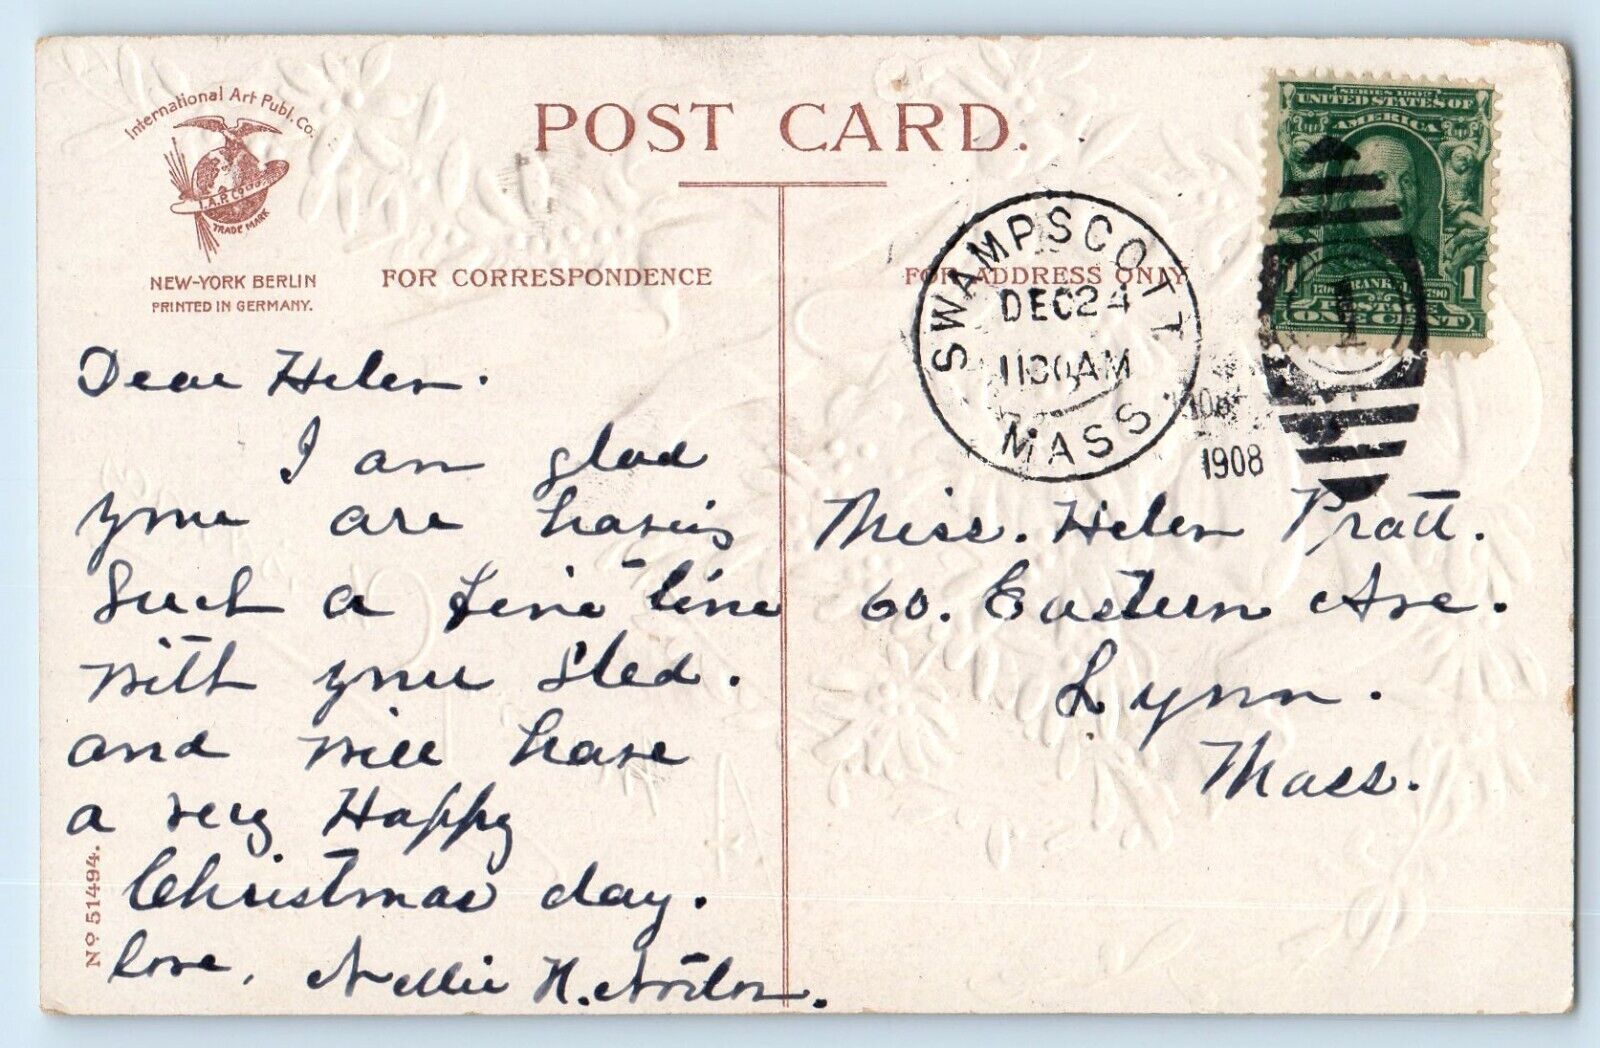 International Art Publ. Co.
I.A.P. Co.
TRADE MARK
NEW-YORK BERLIN
PRINTED IN GERMANY.
POST CARD.
FOR CORRESPONDENCE
FOR ADDRESS ONLY
SWAMPSCOTT
DEC 24
1130AM
MASS.
1908
SERIES 1902
UNITED STATES OF
AMERICA
1 1
FRANKLIN 1790
ONE CENT
Dear Helen.
I am glad
you are having
such a fine time
with your sled.
and will have
a very Happy
Christmas day.
love, Nellie H. Norton.
Miss. Helen Pratt.
60. Eastern Ave.
Lynn.
Mass.
No 51494.